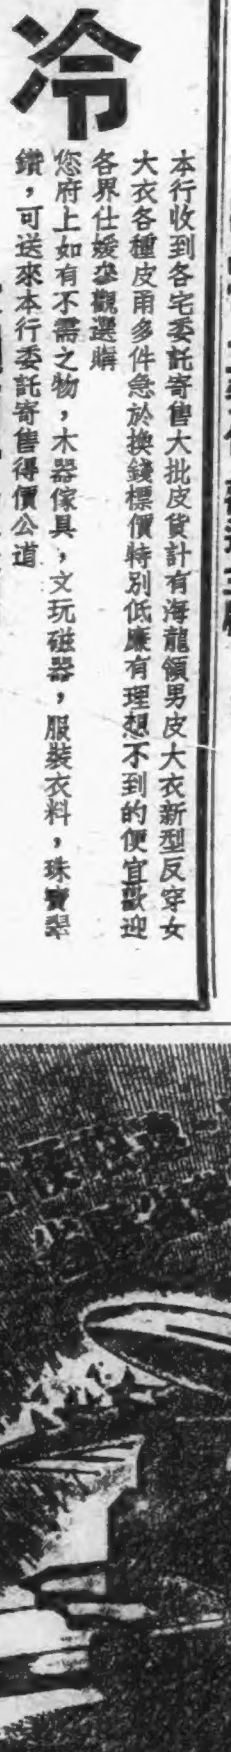 冷
本行收到各宅委託寄售大批皮貨計有海龍領男皮大衣新型反穿女
大衣各種皮甬多件急於換錢標價特別低廉有理想不到的便宜歡迎
各界仕媛參觀選購
您府上如有不需之物，木器傢具，文玩磁器，服裝衣料，珠寶翠
鑽，可送來本行委託寄售得價公道